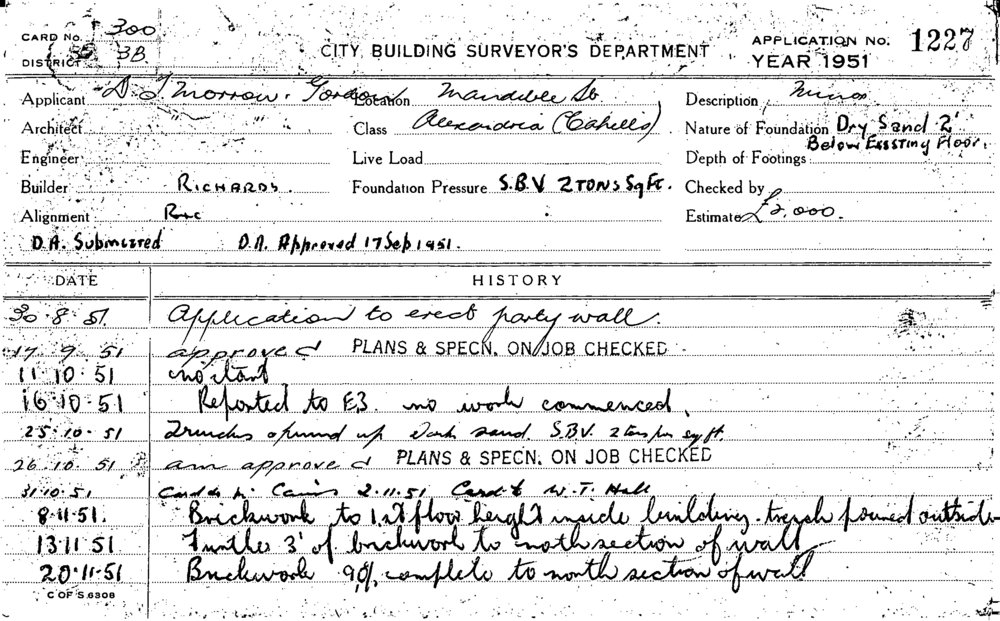 CARD No. 300
DISTRICT 3B
CITY BUILDING SURVEYOR'S DEPARTMENT
APPLICATION No. 1227
YEAR 1951
Applicant D. J. Morrow. Gordon Location Mandible St Description Minor
Architect Class Alexandria (Cahells) Nature of Foundation Dry Sand 2'
Below Existing Floor.
Engineer Live Load Depth of Footings
Builder RICHARDS. Foundation Pressure S.B.V 2 TONS Sq Ft. Checked by
Alignment Estimate £2,000.
D.A. Submitted D.A. Approved 17 Sep 1951.
DATE HISTORY
30.8.51. Application to erect party wall.
17 9 51 approved PLANS & SPECN. ON JOB CHECKED
11.10.51 no start
16.10.51 Reported to E3. no work commenced.
25.10.51 Trenches opened up Dark sand S.B.V. 2 tons per sq ft.
26.10.51 am approved PLANS & SPECN. ON JOB CHECKED
31.10.51 Card to Mr. Cairns 2.11.51 Card to W. T. Hall
8.11.51. Brickwork to 1st floor height inside building. trench poured outside
13.11.51 Further 3' of brickwork to north section of wall
20.11.51 Brickwork 90% complete to north section of wall
C OF S 6308